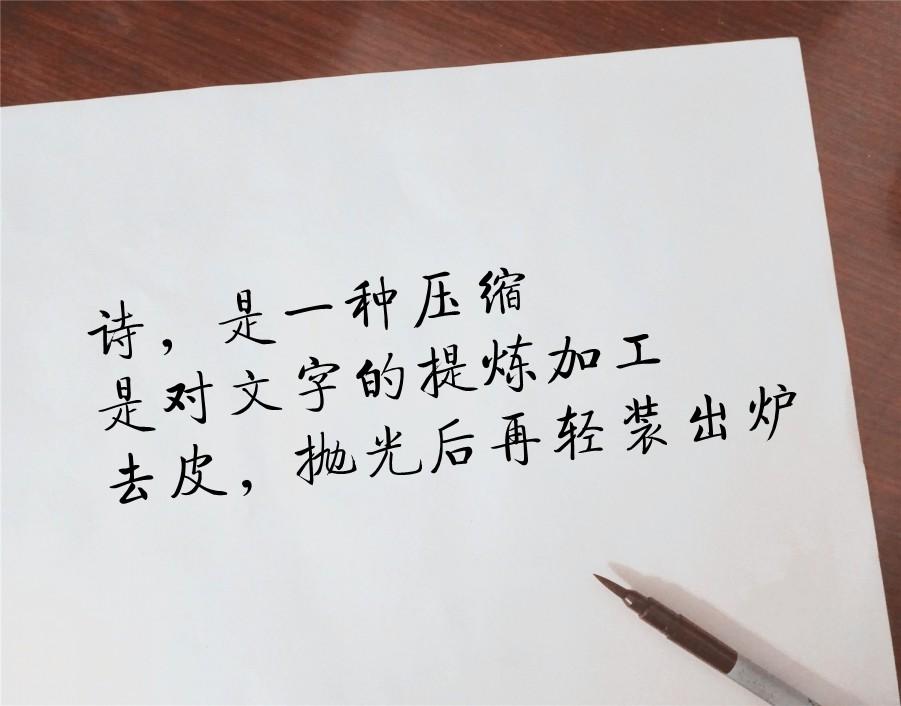 诗，是一种压缩
是对文字的提炼加工
去皮，抛光后再轻装出炉